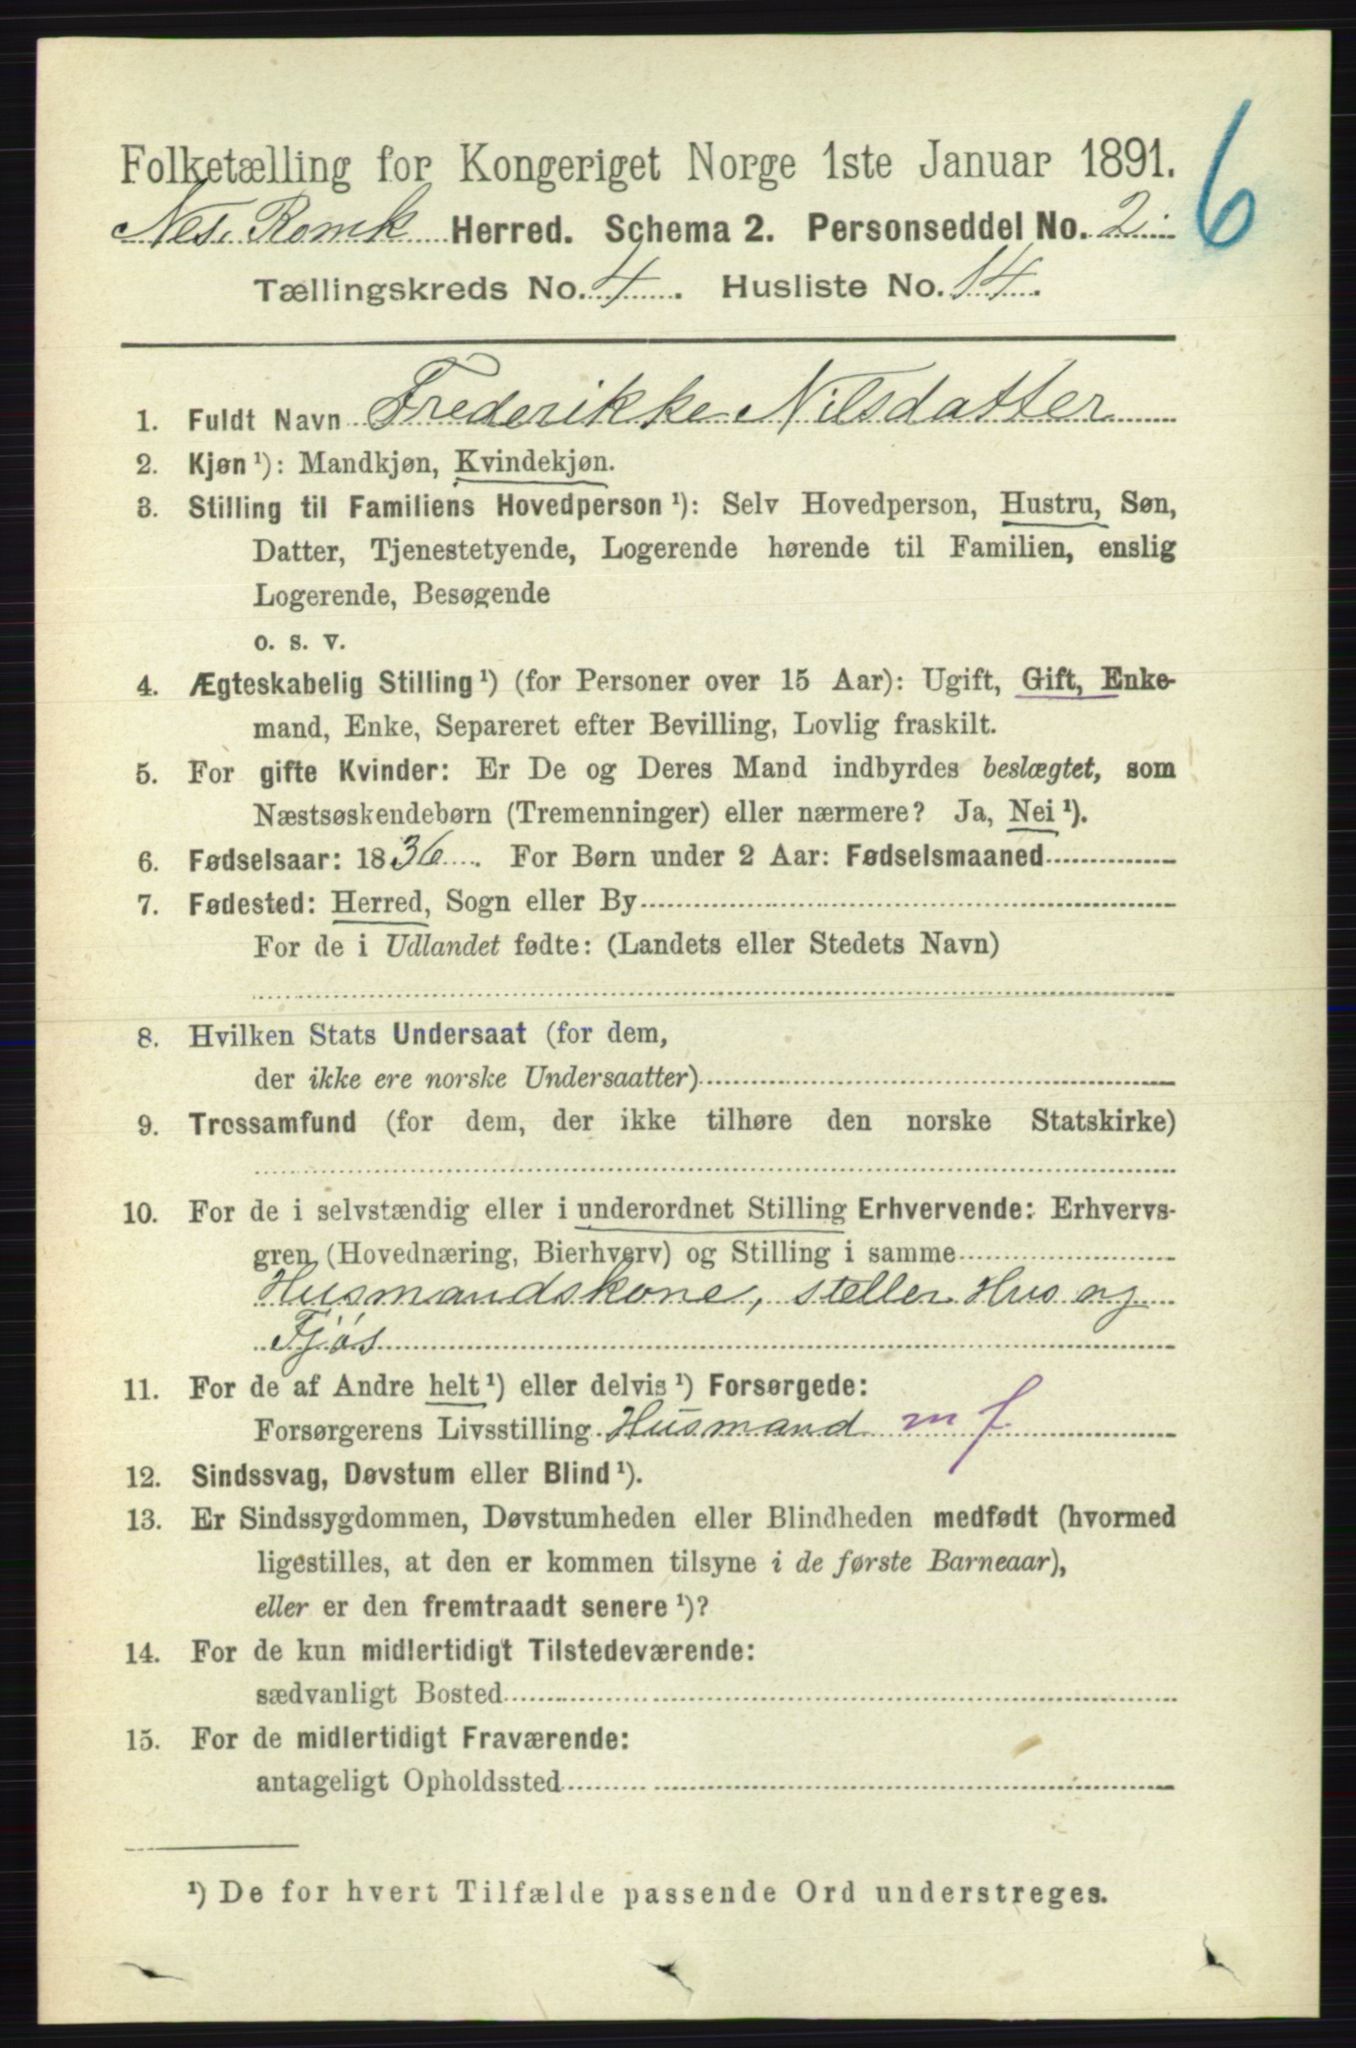 Folketælling for Kongeriget Norge 1ste Januar 1891.
6
Nes. Romk Herred. Schema 2. Personseddel No. 2
Tællingskreds No. 4. Husliste No. 14.
1. Fuldt Navn Frederikke Nilsdatter
2. Kjøn ¹): Mandkjøn, Kvindekjøn.
3. Stilling til Familiens Hovedperson ¹): Selv Hovedperson, Hustru, Søn,
Datter, Tjenestetyende, Logerende hørende til Familien, enslig
Logerende, Besøgende
o. s. v.
4. Ægteskabelig Stilling ¹) (for Personer over 15 Aar): Ugift, Gift, Enke-
mand, Enke, Separeret efter Bevilling, Lovlig fraskilt.
5. For gifte Kvinder: Er De og Deres Mand indbyrdes beslægtet, som
Næstsøskendebørn (Tremenninger) eller nærmere? Ja, Nei ¹).
6. Fødselsaar: 1836. For Børn under 2 Aar: Fødselsmaaned
7. Fødested: Herred, Sogn eller By
For de i Udlandet fødte: (Landets eller Stedets Navn)
8. Hvilken Stats Undersaat (for dem,
der ikke ere norske Undersaatter)
9. Trossamfund (for dem, der ikke tilhøre den norske Statskirke)
10. For de i selvstændig eller i underordnet Stilling Erhvervende: Erhvervs-
gren (Hovednæring, Bierhverv) og Stilling i samme
Husmandskone, steller Hus og
Fjøs
11. For de af Andre helt ¹) eller delvis ¹) Forsørgede:
Forsørgerens Livsstilling Husmand m f.
12. Sindssvag, Døvstum eller Blind ¹).
13. Er Sindssygdommen, Døvstumheden eller Blindheden medfødt (hvormed
ligestilles, at den er kommen tilsyne i de første Barneaar),
eller er den fremtraadt senere ¹)?
14. For de kun midlertidigt Tilstedeværende:
sædvanligt Bosted
15. For de midlertidigt Fraværende:
antageligt Opholdssted
¹) De for hvert Tilfælde passende Ord understreges.